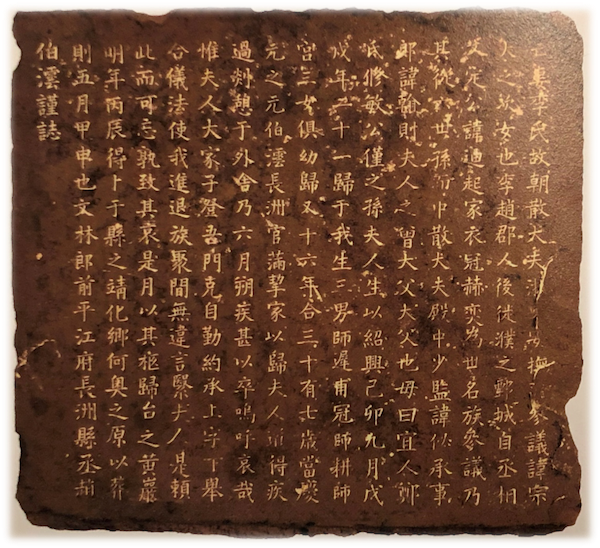 室李氏故朝散大夫撫參議諱宗
大之次女也李趙郡人後徙濮之鄄城自丞相
文定公諱迪起家衣冠赫奕為世名族參議乃
其從世孫中散大夫殿中少監諱似承事
郎諱翰則夫人之曾大父大父也母曰宜人鄭
氏修敏公僅之孫夫人生以紹興己卯九月戊
戌年二十一歸于我生三男師遲甫冠師耕師
宮三女俱幼歸又十六年合三十有七歲當慶
元之元伯澐長洲官滿挈家以歸夫人道得疾
過剡憩于外舍乃六月朔疾甚以卒嗚呼哀哉
惟夫人大家子登吾門克自勤約承上字下舉
合儀法使我進退族聚間無違言繄夫人是賴
此而可忘孰致其哀是月以其柩歸台之黃巖
明年丙辰得卜于縣之靖化鄉何奧之原以葬
則五月甲申也文林郎前平江府長洲縣丞趙
伯澐謹誌